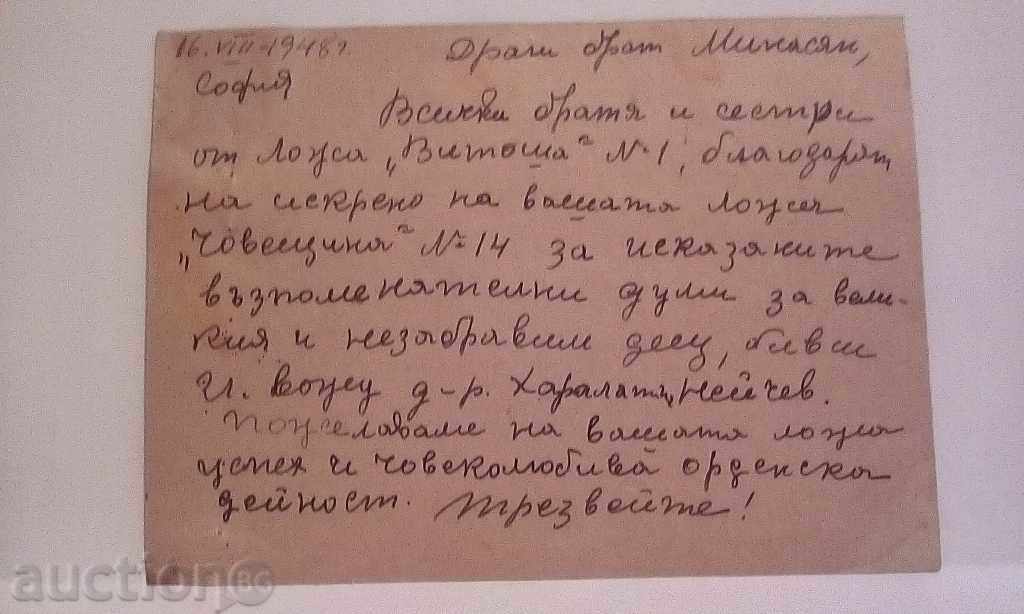 16.VIII-1948 г. Драги брат Минасян,
София
Всички братя и сестри
от ложа „Витоша“ №1, благодарят
на искрено на вашата ложа
„Човещина“ № 14 за исказаните
възпоменателни думи за вели-
кия и незабравим деец, бивш
И. вожд д-р. Харалампи Нейчев.
Пожелаваме на вашата ложа
успех и човеколюбива орденска
дейност. Трезвейте!
auction BG